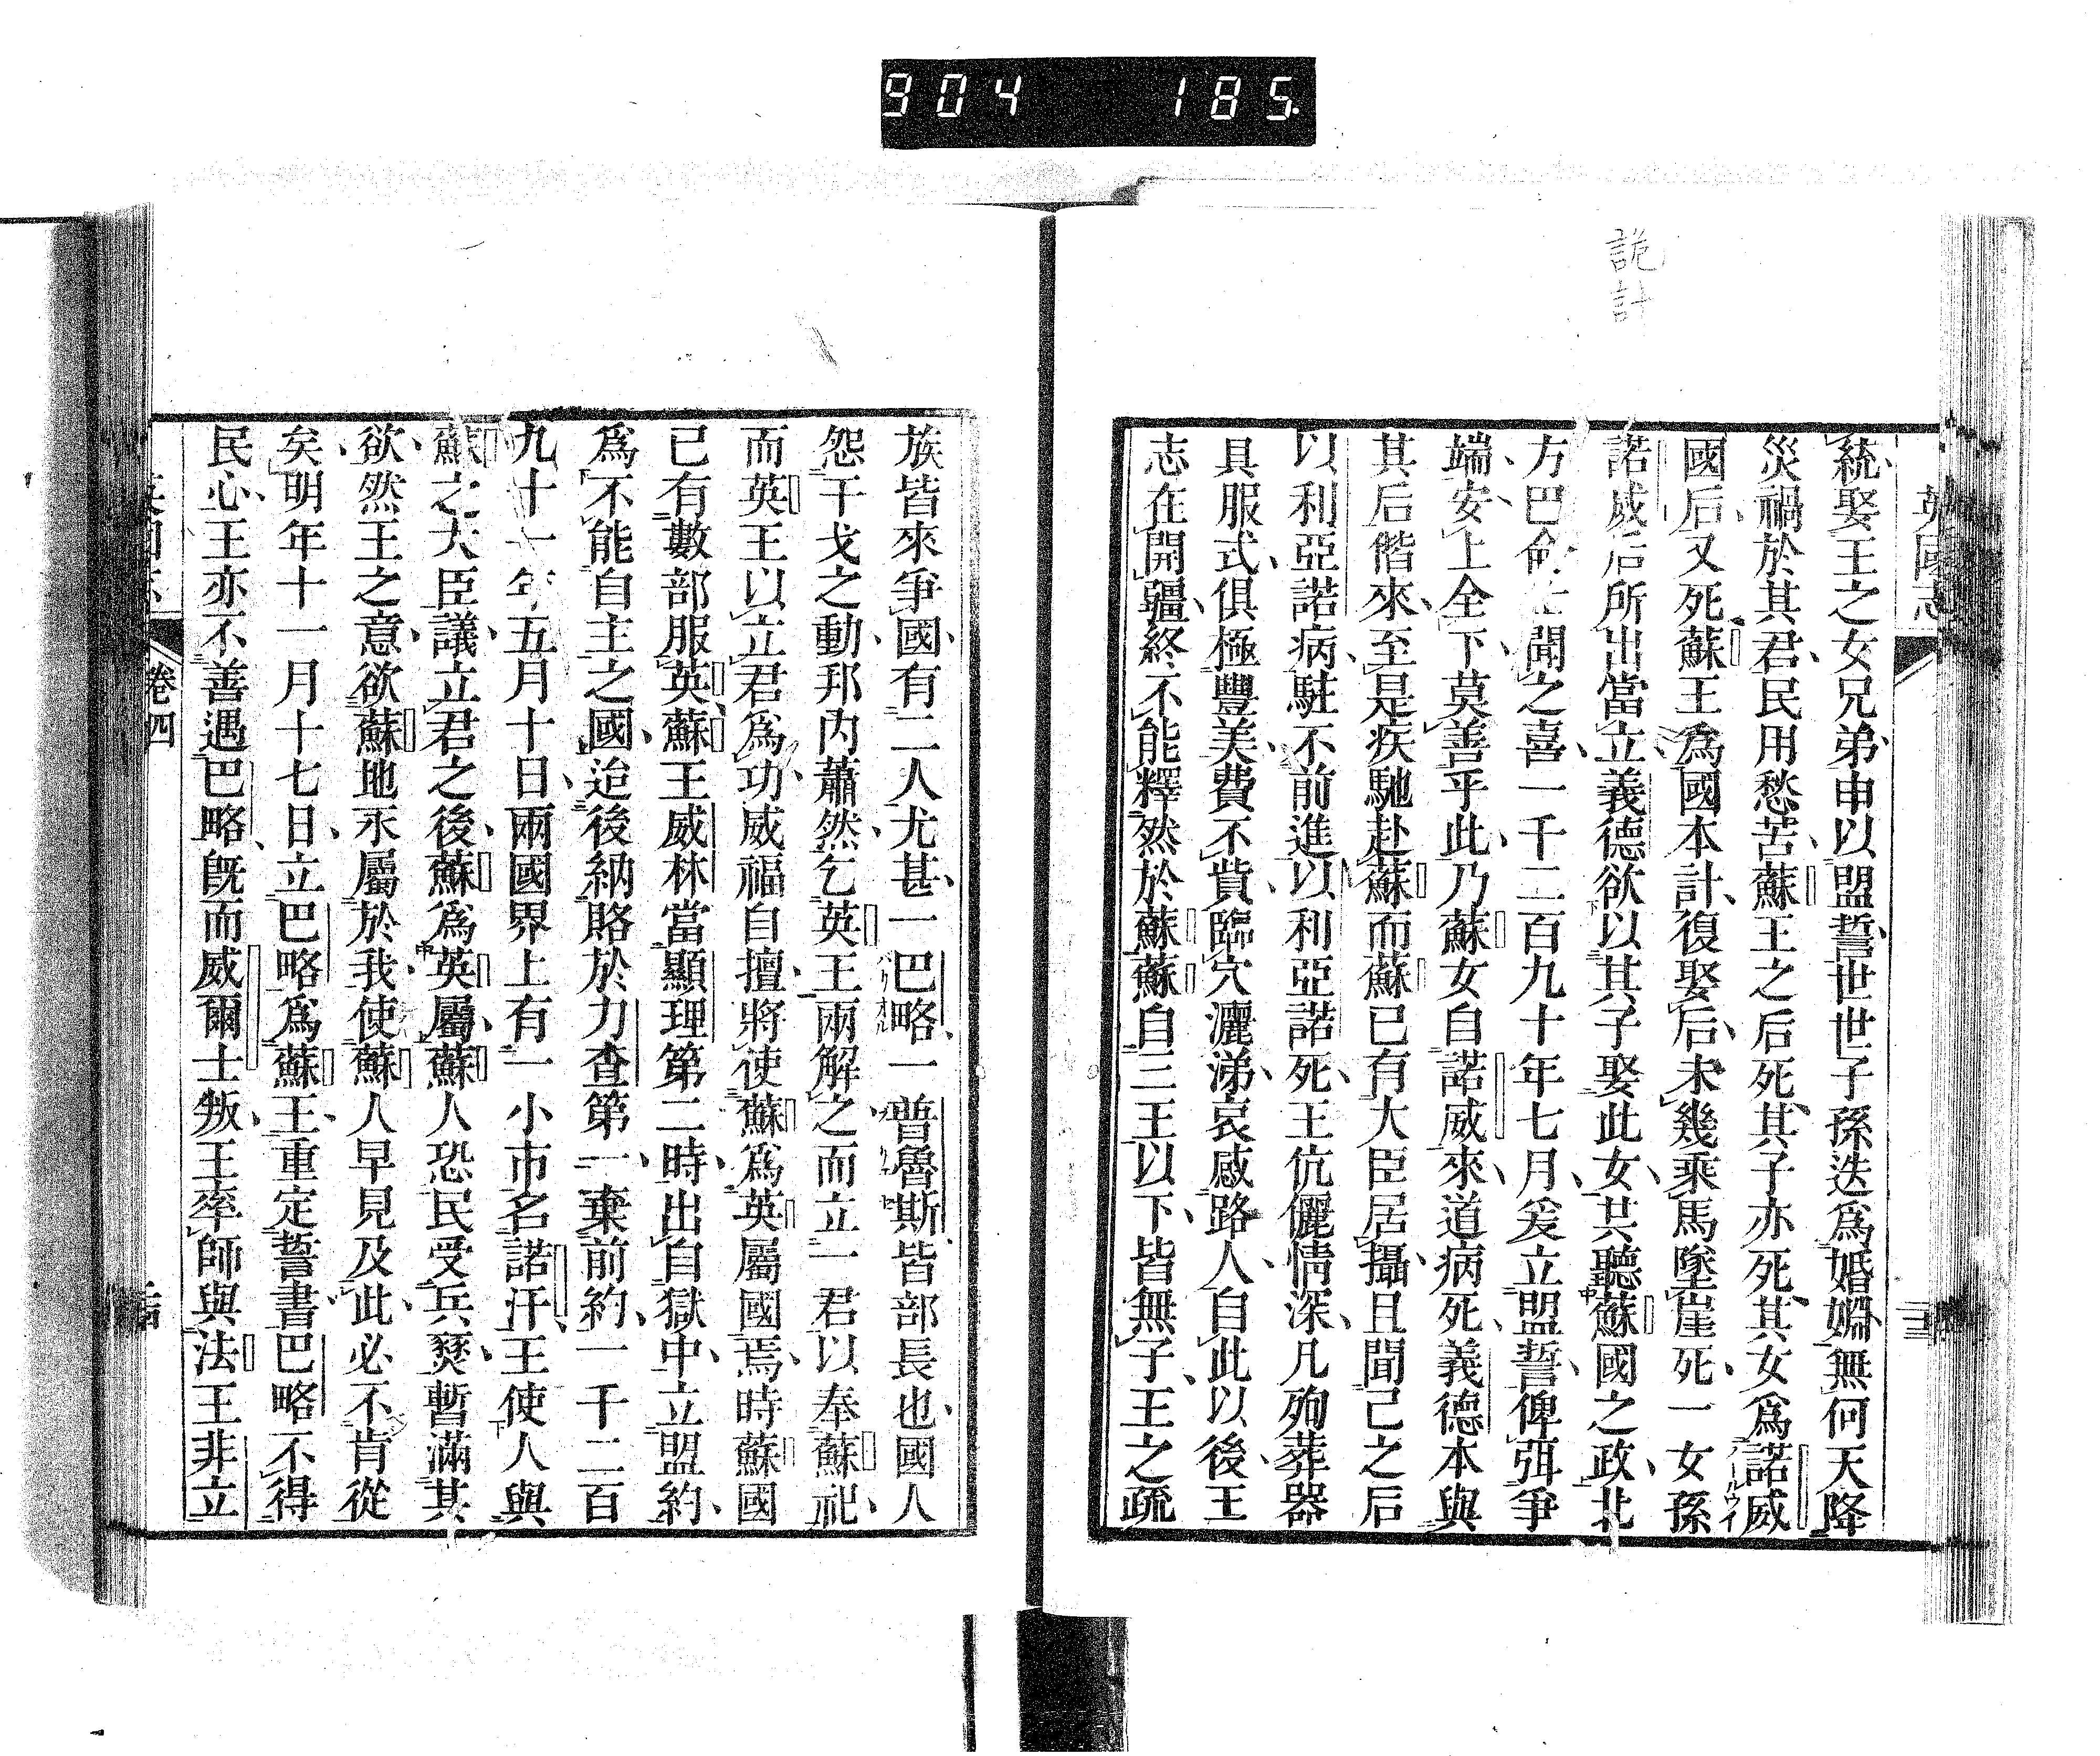 904 185
詭計
英國志
統娶王之女兄弟申以盟誓世世子孫迭爲婚姻無何天降
災禍於其君民用愁苦蘇王之后死其子亦死其女爲諾威
國后又死蘇王爲國本計復娶后未幾乘馬墜崖死一女孫
諾威后所出當立義德欲以其子娶此女共聽蘇國之政北
方巴侖聞之喜一千二百九十年七月爰立盟誓俾弭爭
端安上全下莫善乎此乃蘇女自諾威來道病死義德本與
其后偕來至是疾馳赴蘇而蘇已有大臣居攝且聞己之后
以利亞諾病駐不前進以利亞諾死王伉儷情深凡殉葬器
具服式俱極豐美費不貲臨穴灑涕哀感路人自此以後王
志在開疆終不能釋然於蘇蘇自三王以下皆無子王之疏
族皆來爭國有二人尤甚一巴略一普魯斯皆部長也國人
怨干戈之動邦內蕭然乞英王兩解之而立一君以奉蘇祀
而英王以立君爲功威福自擅將使蘇爲英屬國焉時蘇國
已有數部服英蘇王威林當顯理第二時出自獄中立盟約
爲不能自主之國迨後納賂於力查第一棄前約一千二百
九十一年五月十日兩國界上有一小市名諾汗王使人與
蘇之大臣議立君之後蘇爲英屬蘇人恐民受兵燹暫滿其
欲然王之意欲蘇地永屬於我使蘇人早見及此必不肯從
矣明年十一月十七日立巴略爲蘇王重定誓書巴略不得
民心王亦不善遇巴略旣而威爾士叛王率師與法王非立
卷四